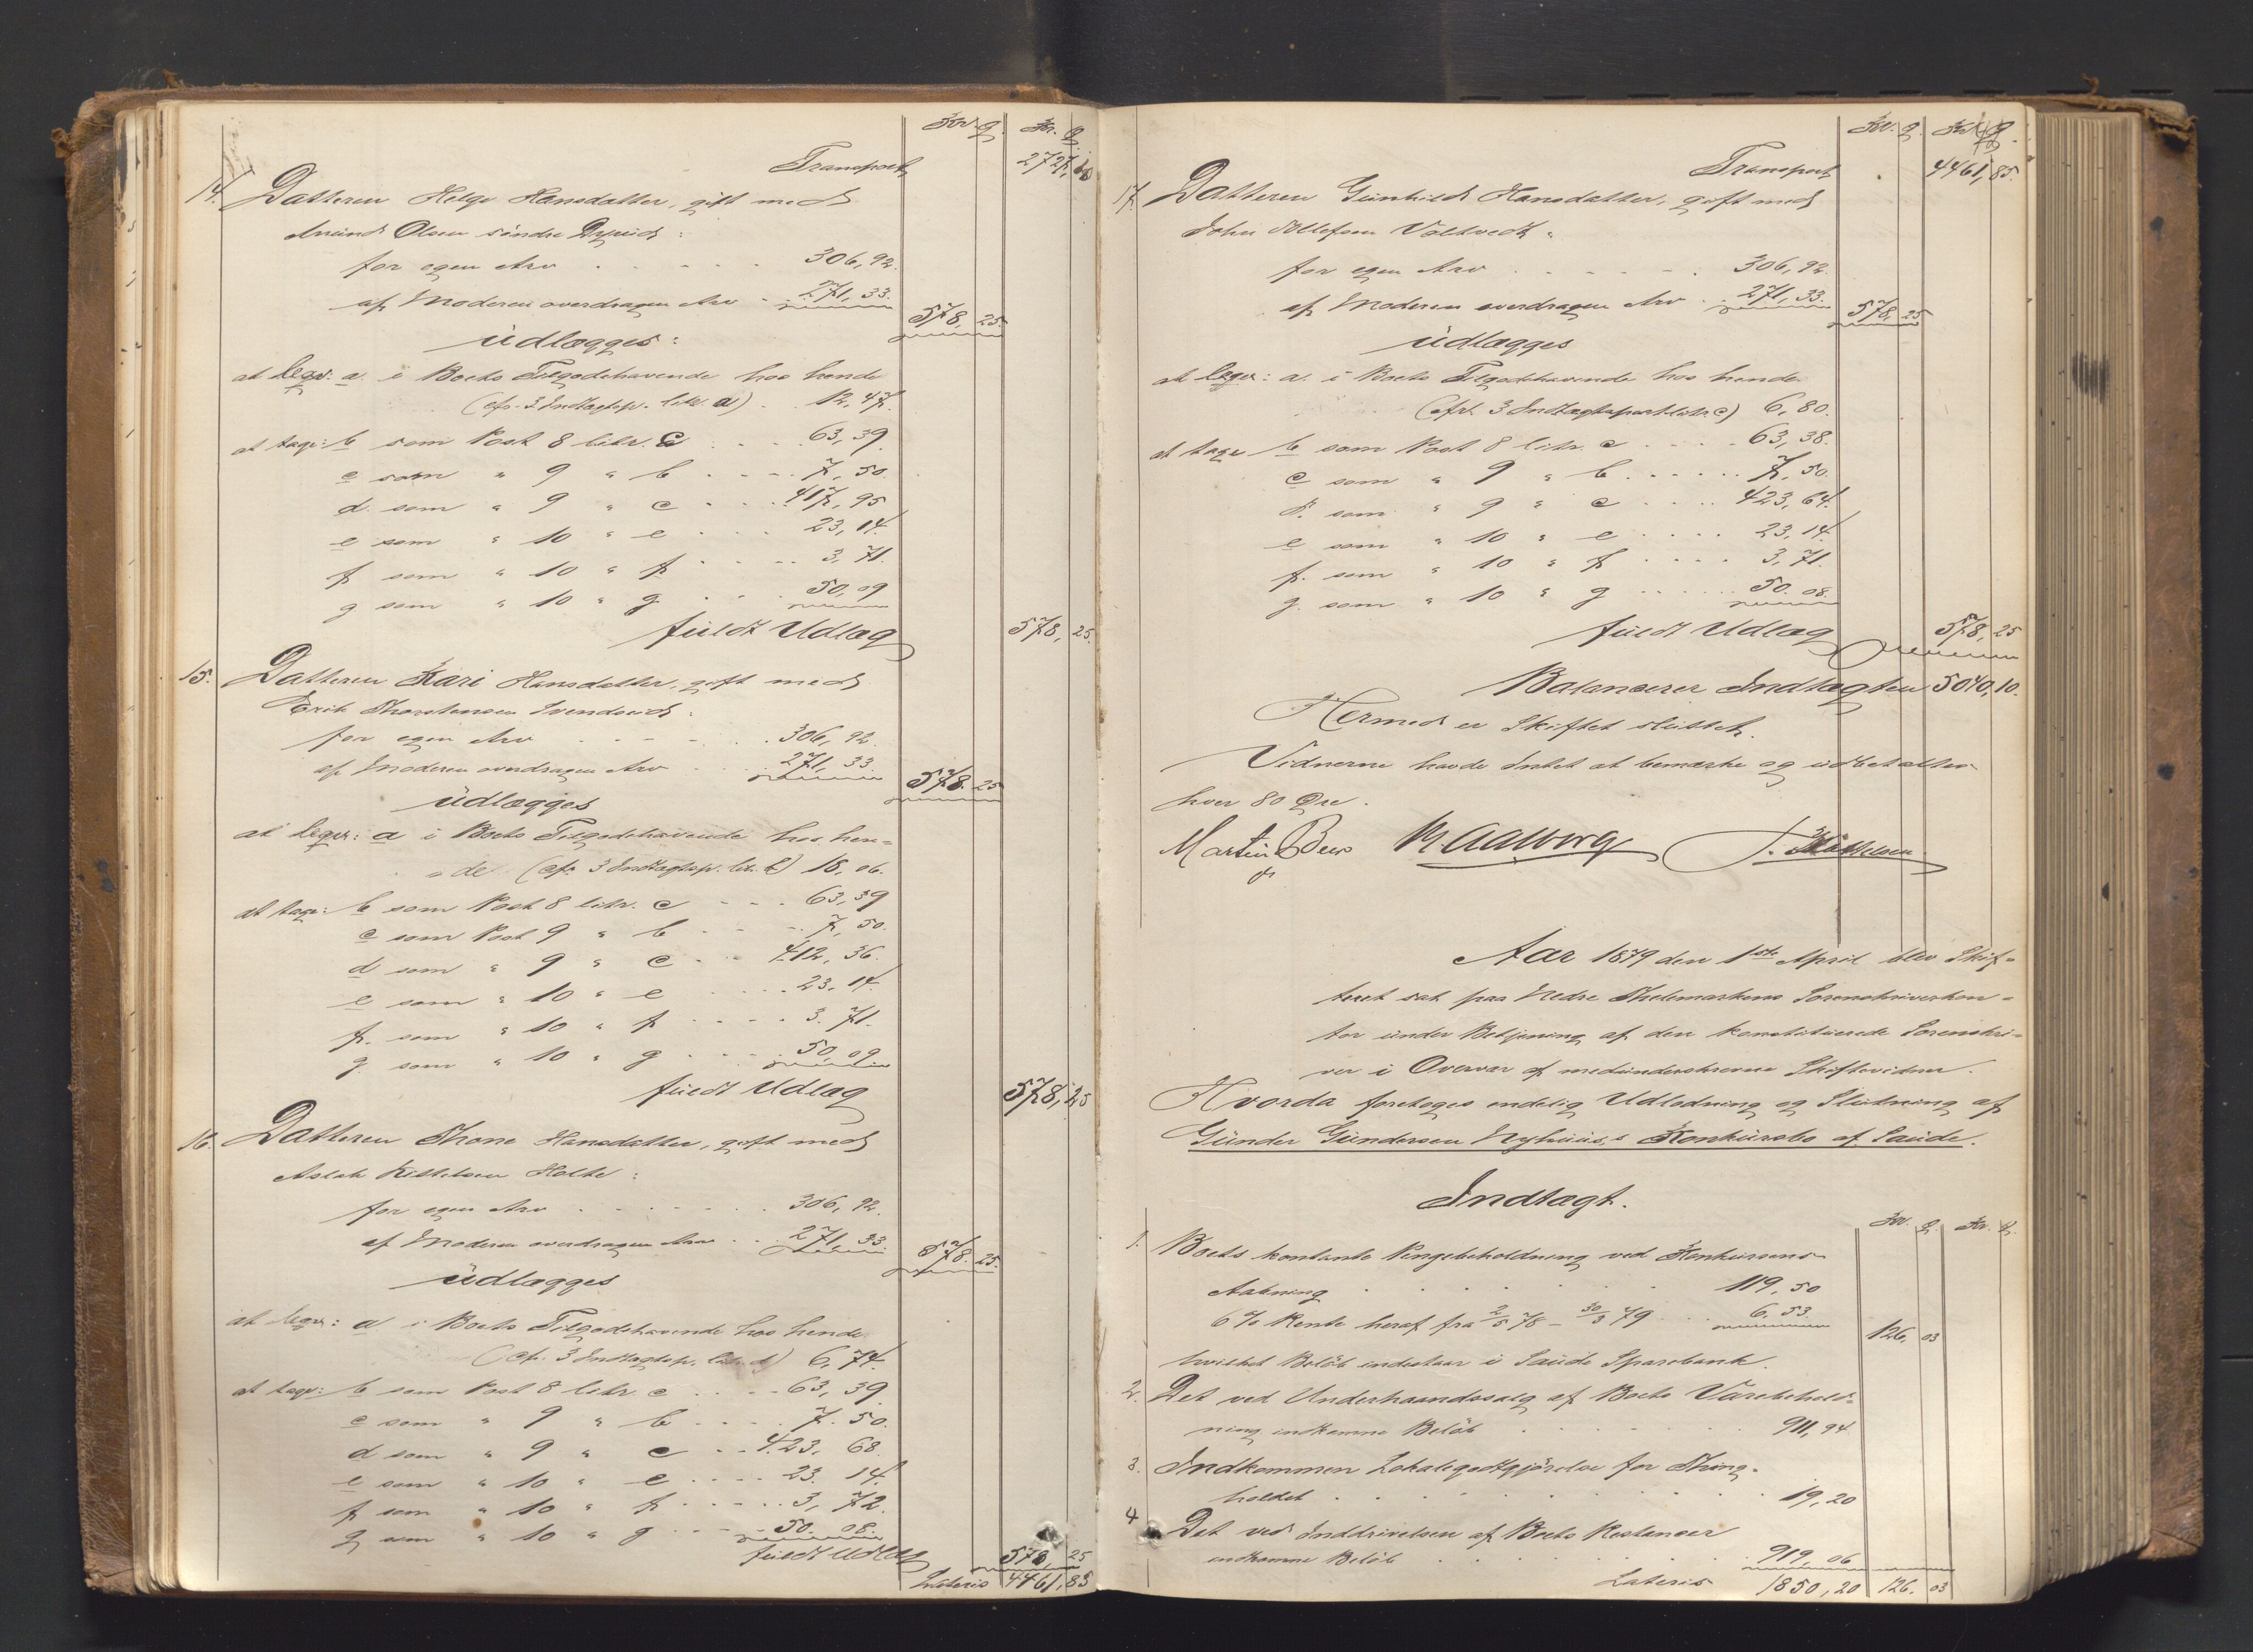 Kr. Ø. Kr. Ø.
Transport 2727,10
14. Datteren Helge Hansdatter, gift med
Amund Olsen söndre Dypvid:
for egen Arv 306,92.
af Moderen overdragen Arv 271,33. 578,25.
udlægges:
at lægv: a. i Boets Tilgodehavende hos hende
(cfr. 3 Indtægtsp. litr. a) 12,47.
at tage: b som Post 8 litr. c 63,39.
c som " 9 " b 7,50.
d. som " 9 " c 417,95
e som " 10 " e 23,14.
f som " 10 " f 3,71.
g som " 10 " g 50,09
fuldt Udlæg 578,25.
15. Datteren Kari Hansdatter, gift med
Erik Thorstensen Svendseid:
for egen Arv 306,92.
af Moderen overdragen Arv 271,33. 578.25
udlægges
at lægv: a i Boets Tilgodehavende hos hen=
=de (cfr 3 Indtægtsp. litr. b) 18,06.
at tage: b som Post 8 litr. c 63,39
c som Post 9 " b 7,50.
d som " 9 " c 412,36.
e som " 10 " e 23,14.
f. som " 10 " f 3.71.
g. som " 10 " g 50,09
fuldt Udlæg 578,25
16. Datteren Thone Hansdatter, gift med
Aslak Kittelsen Holte:
for egen Arv 306,92.
af Moderen overdragen Arv 271,33 578.25.
udlægges
at lægv: a i Boets Tilgodehavende hos hende
(cfr. 3 Indtægtsp. litr. d) 6,74.
at tage: b som Post 8 litr c 63,39
c som " 9 " b 7.50.
d som " 9 " c 423,68.
e som " 10 " e 23.14.
f som " 10 " f 3,72.
g som " 10 " g 50.08.
fuldt Udlæg 578,25
Lateris 4461,85
Kr. Ø. Kr. Ø.
Transport 4461,85.
17. Datteren Gunhild Hansdatter, gift med
John Tollefsen Valtvedt:
for egen Arv 306,92.
af Moderen overdragen Arv 271,33. 578,25
udlægges
at lægv: a. i Boets Tilgodehavende hos hende
(cfr. 3 Indtægtspost litr. c) 6,80.
at tage b som Post 8 litr. c 63,38.
c som " 9 " b 7,50.
d. som " 9 " c 423,64.
e som " 10 " e 23,14.
f. som " 10 " f 3,71.
g. som " 10 " g 50.08.
fuldt Udlæg 578,25
Balancerer Indtægten 5040,10.
Hermed er Skiftet sluttet.
Vidnerne havde Intet at bemærke og udbetaltes
hver 80 Øre.
Martin Beer Aalborg
Aar 1879 den 1ste April blev Skif=
teret sat paa Nedre Thelemarkens Sorenskriverkon=
tor under Betjening af den konstituerede Sorenskri=
ver i Overvær af medunderskrevne Skiftevidner.
Hvorda foretoges endelig Udlodning og Slutning af
Gunder Gundersen Nyhuus,s Konkursbo af Saude.
Indtægt.
Kr. Ø. Kr. Ø.
1. Boets kontante Pengebeholdning ved Konkursens
Aabning 119,50
6 % Rente heraf fra 2/5 78 – 30/3 79 6,53. 126,03
hvilket Beløb indestaar i Saude Sparebank.
2. Det ved Underhaandssalg af Boets Varebehold=
ning indkomne Beløb 911,94
3. Indkommen Lokalegodtgjörelse for Thing=
holdet 19,20
4 Det ved Inddrivelsen af Boets Restancer
indkomne Beløb 919,06
Lateris 1850,20 126.03